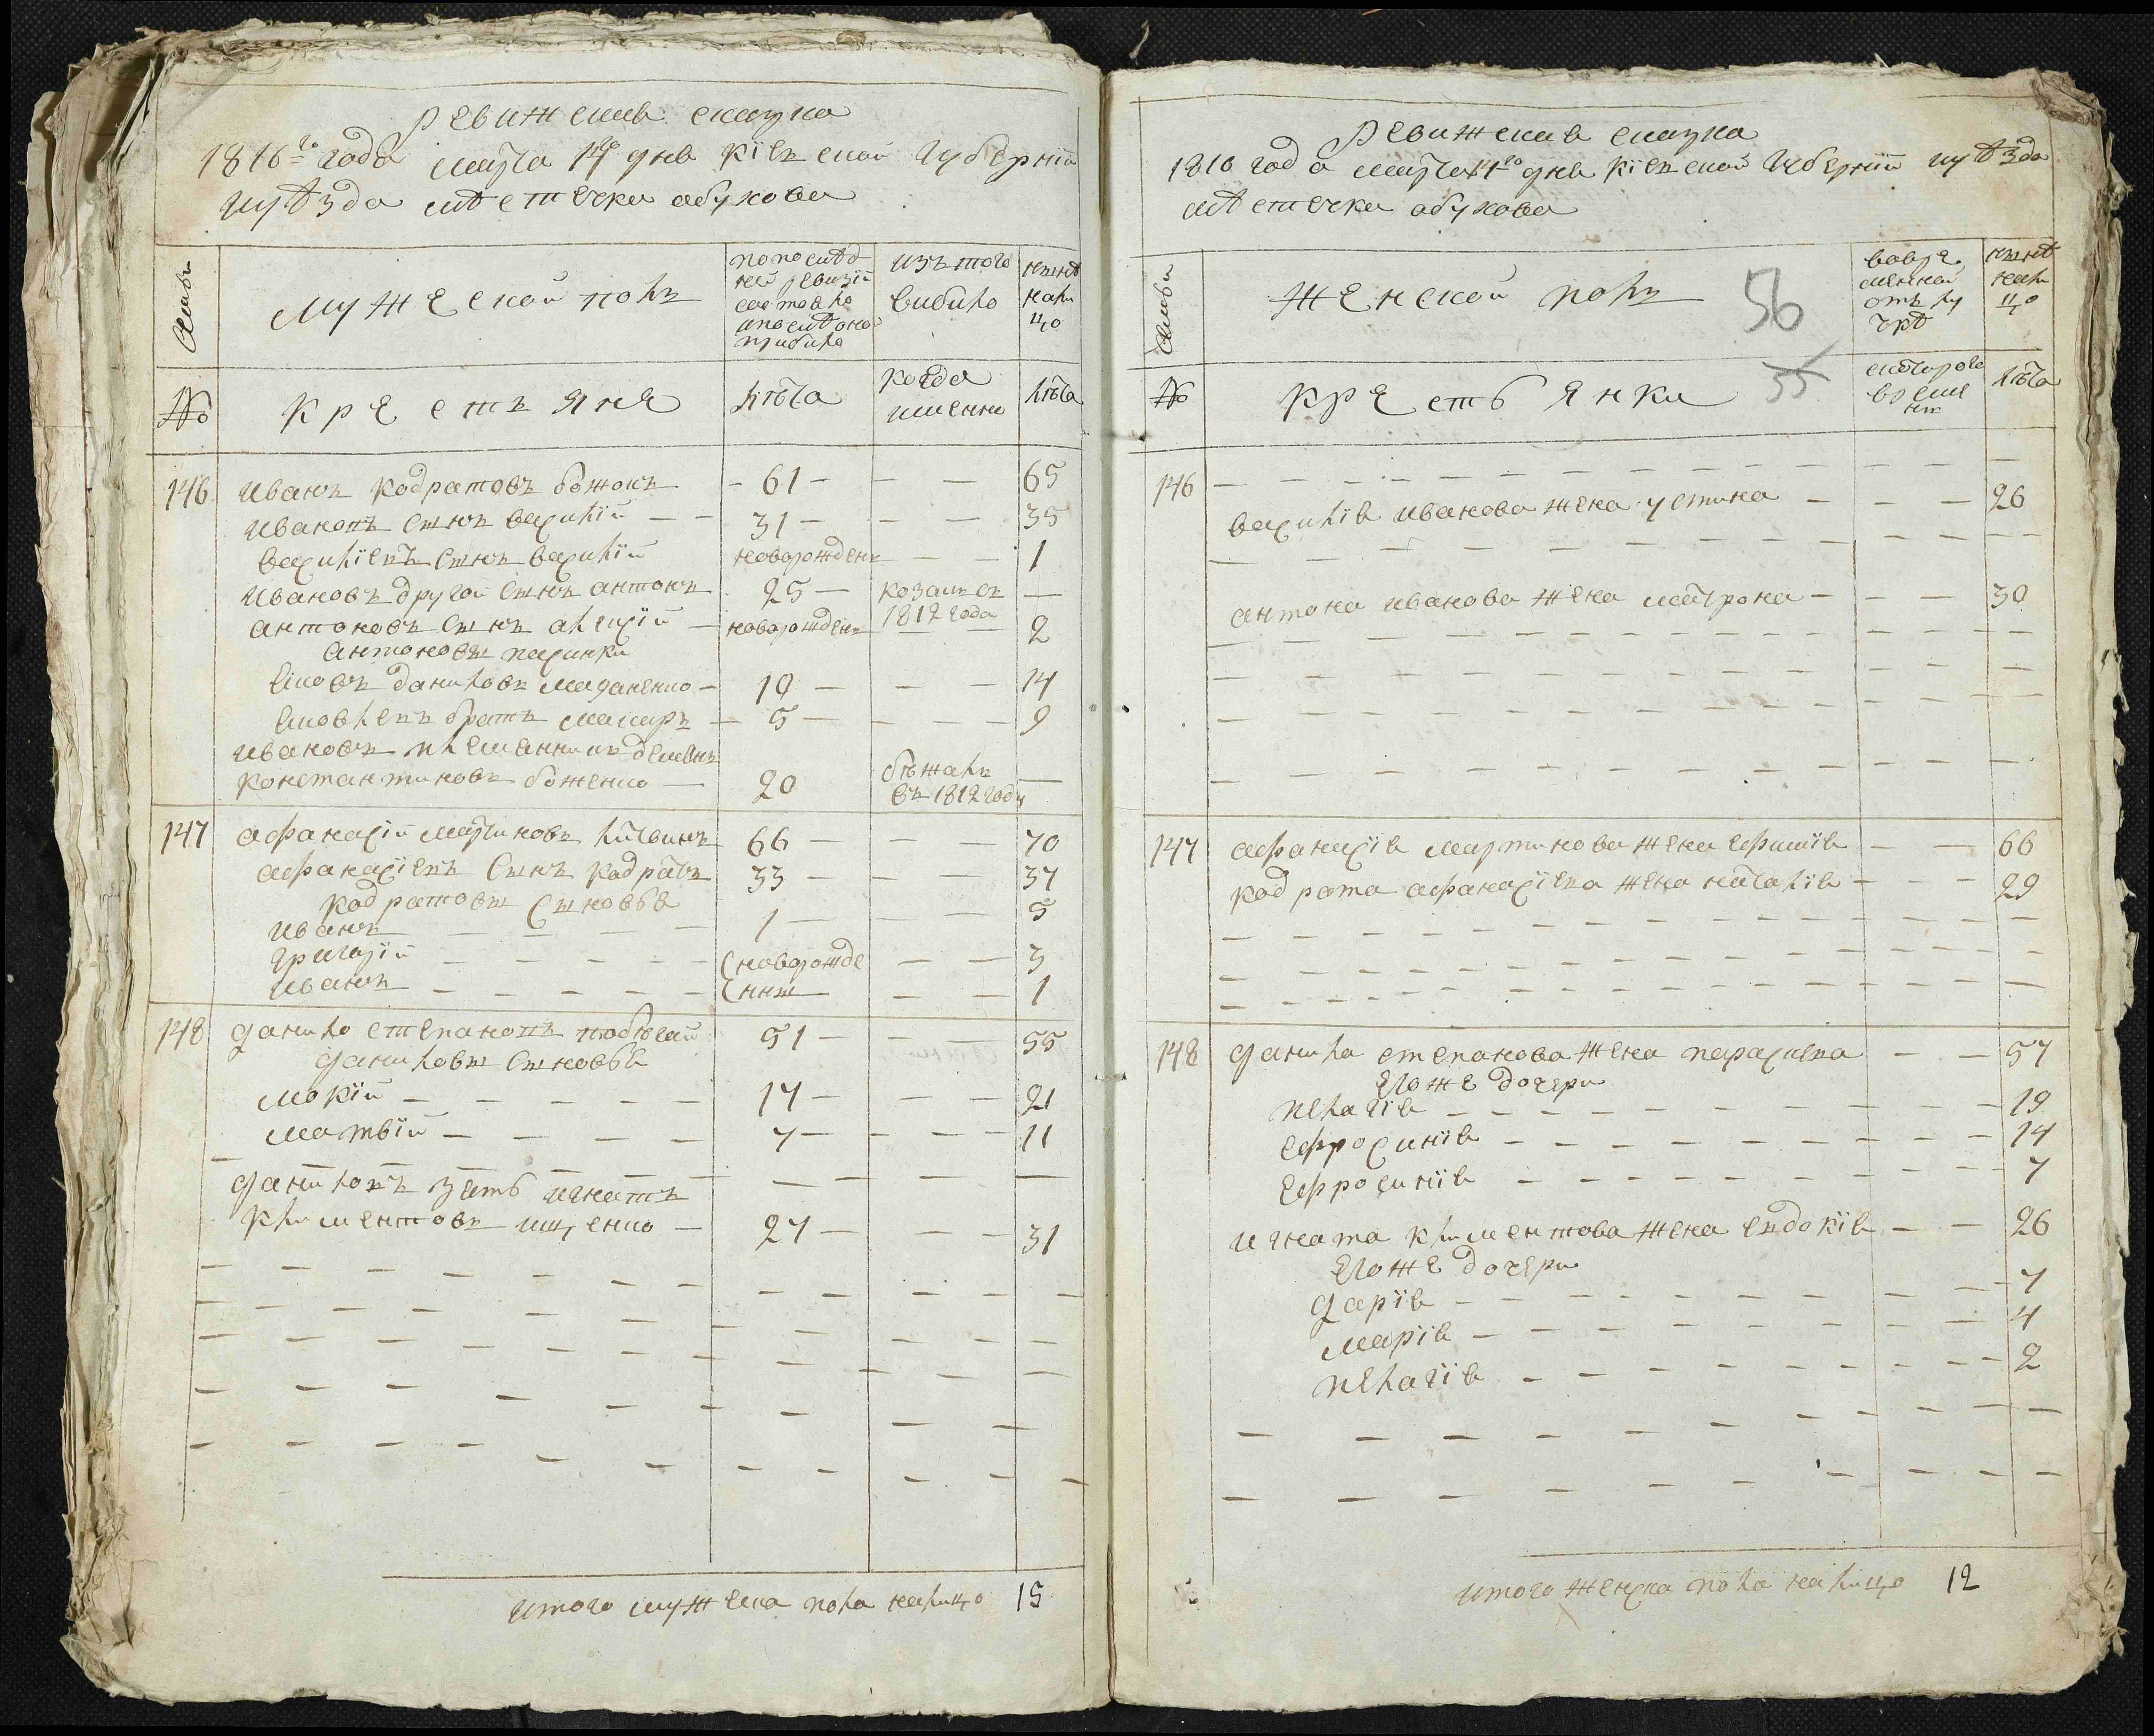 Ревижская сказка
1816го года марта 14 дня кіевской губерніи
уѣзда мѣстечка обухова
Семьи
Мужеской полъ
по послѣд
ней ревизіи
состояло
и послѣ оной
прибыло
изъ того
выбыло
нынѣ
нали
цо
№
крестьяне
лѣта
когда
именно
лѣта
146 иванъ кодратовъ божокъ - 61 - - - 65
ивановъ сынъ василій - - 31 - - - 35
василіевъ сынъ василій новорожденъ - - 1
ивановъ другой сынъ антонъ 25 - козакъ съ 1812 года -
антоновъ сынъ алексій - новорожденъ - - 2
антоновы пасинки
яковъ даниловъ - 10 - - - 14
яковлевъ братъ макаръ - 5 - - - 9
ивановъ племянникъ демянъ
константиновъ боженко - 20 бѣжалъ въ 1812 году -
147 афанасій мартиновъ литвинъ 66 - - - 70
афанасіевъ сынъ кодратъ 33 - - - 37
кодратовы сыновья
иванъ - - - - - 1 - - - 5
григорій - - - - - (новорожде - - 3
иванъ - - - - - (нны - - 1
148 данило степановъ 51 - - - 55
даниловы сыновья
мокій - - - - - 17 - - - 21
матвій - - - - 7 - - - - 11
даниловъ зять игнатъ
климентовъ ищенко - 27 - - - 31
итого мужеска пола налицо 15
Ревижская сказка
1816 года марта 14го дня кіевской губерніи уѣзда
мѣстечка обухова
Семьи
женской полъ
56
55
во вре
менной
отлу
чкѣ
нынѣ
нали
цо
№
крестьянки
съ котораго
време
ни
лѣта
146 - - - - - - - - - - - - -
василія иванова жена устина - - - 26
антона иванова жена матрона - - - 30
147 афанасія мартинова жена ефимія - - 66
кодрата афанасіева жена наталія - - - 29
148 данила степанова жена парасцева - - 57
его же дочери
пелагія - - - - - - - - - - 19
ефросинія - - - - - - - - - - 14
ефросинія - - - - - - - - - 7
игната климентова жена евдокія - - 26
его же дочери
дарія - - - - - - - - - 7
марія - - - - - - - - - 4
пелагія - - - - - - - - - 2
итого женска пола налицо 12